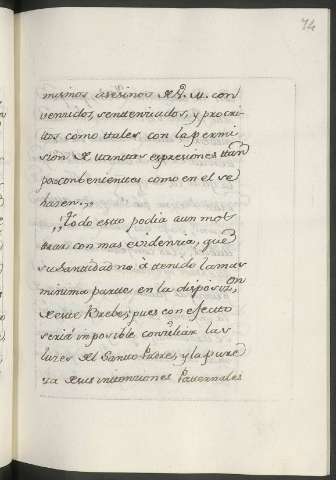 74
mismos asesinos de S. M. con
vencidos, sentenciados, y proscri
ttos como ttales con la permi
sion de ttanttas expresiones ttan
poco conbenienttes como en el se
hacen.,,
,,Ttodo estto podia aun mos
ttrar con mas evidencia, que
su Santtidad no à ttenido la mas
minima partte en la disposiz.on
de estte Brebe; pues con efectto
seria imposible conciliar las
luces del Santto Padre, y la pure
za de sus inttenciones Patternales